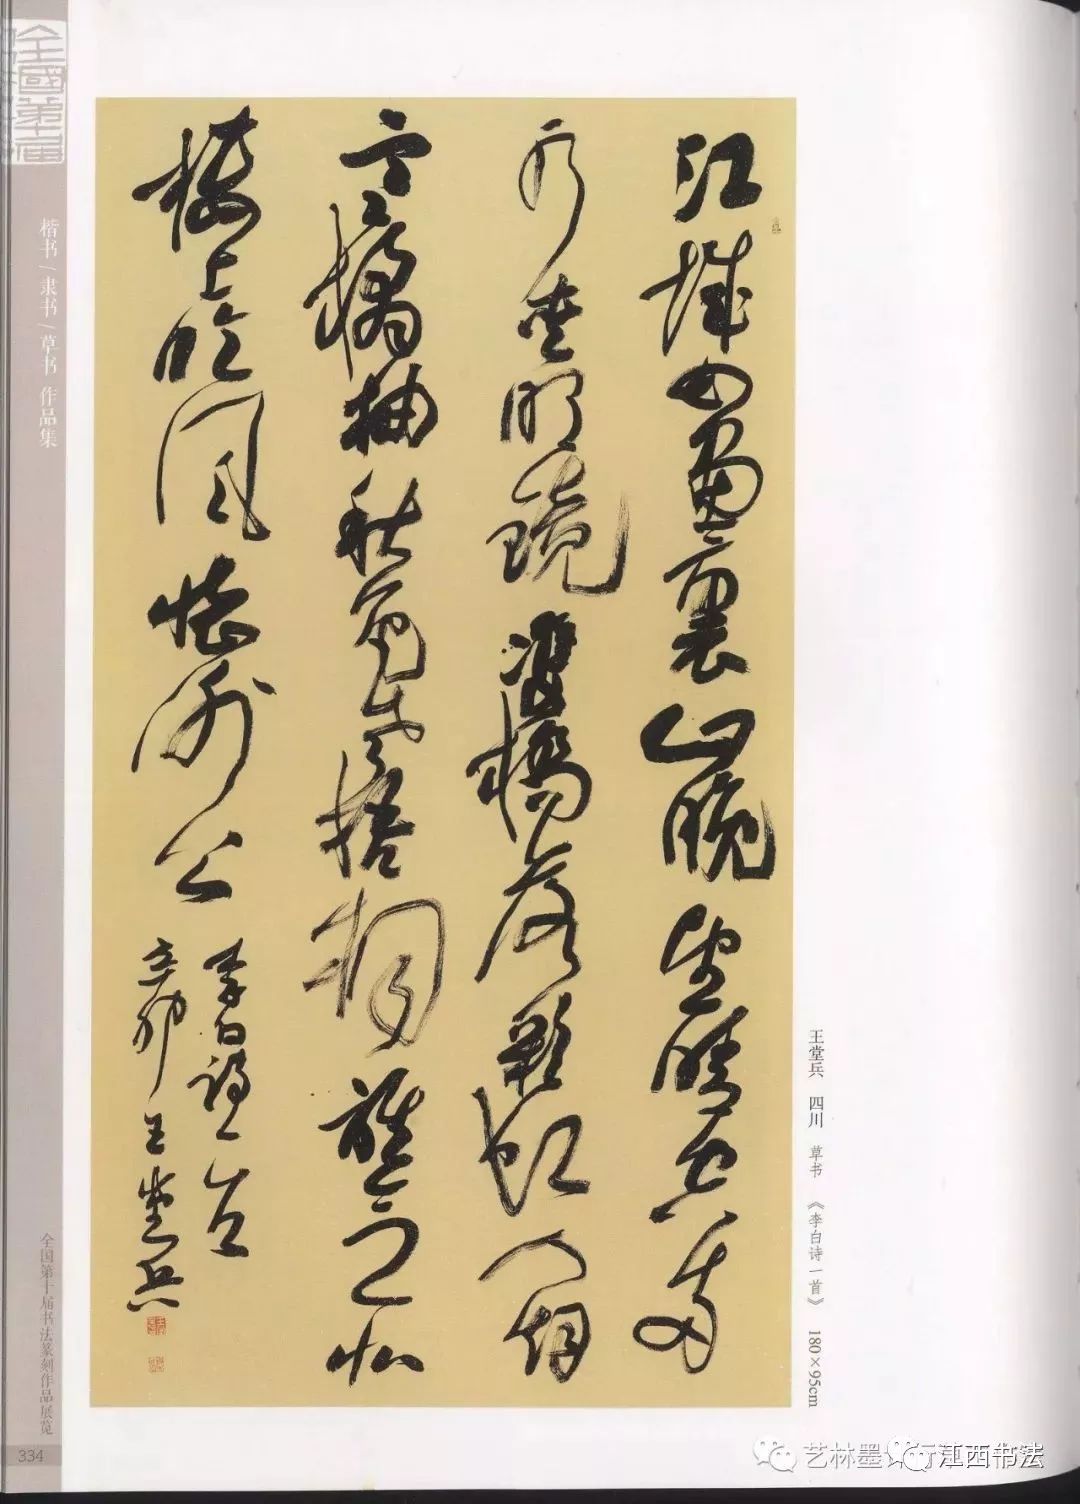 江城如畫裏山晚望晴空兩
水夾明鏡雙橋落彩虹人烟
寒橘柚秋色老梧桐誰念北
樓上臨風懷謝公
李白詩一首
辛卯王堂兵
王堂兵 四川 草书 《李白诗一首》 180×95cm
全國第十屆
楷书/隶书/草书 作品集
全国第十届书法篆刻作品展览
334
艺林墨
江西书法